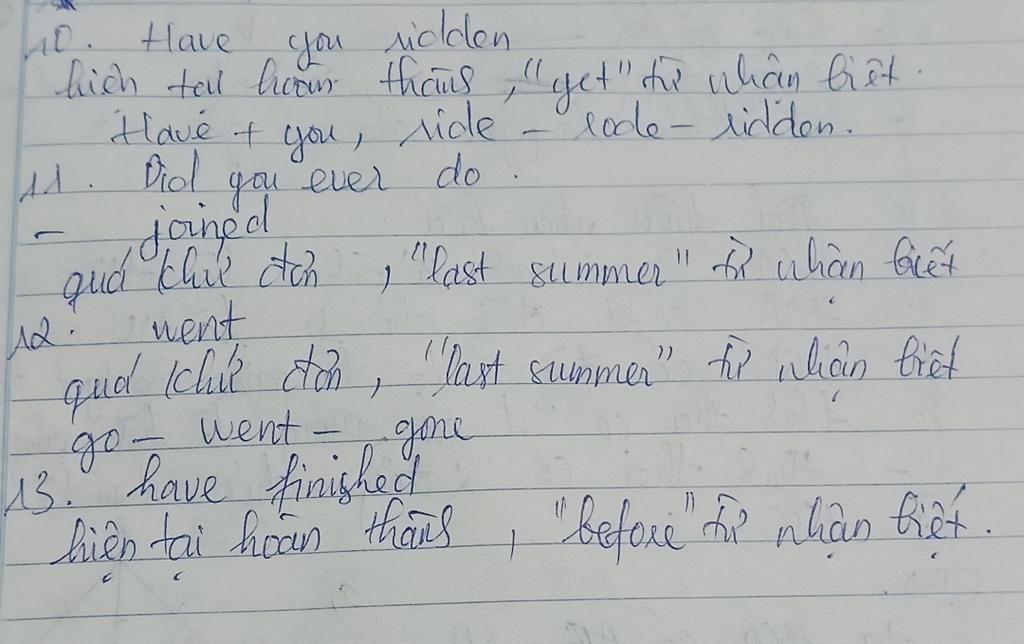 10. Have you ridden
hiện tại hoàn thành, "yet" từ nhận biết.
Have + you, ride - rode - ridden.
11. Did you ever do.
- joined
quá khứ đơn, "last summer" từ nhận biết
12. went
quá khứ đơn, "last summer" từ nhận biết
go - went - gone
13. have finished
hiện tại hoàn thành, "before" từ nhận biết.